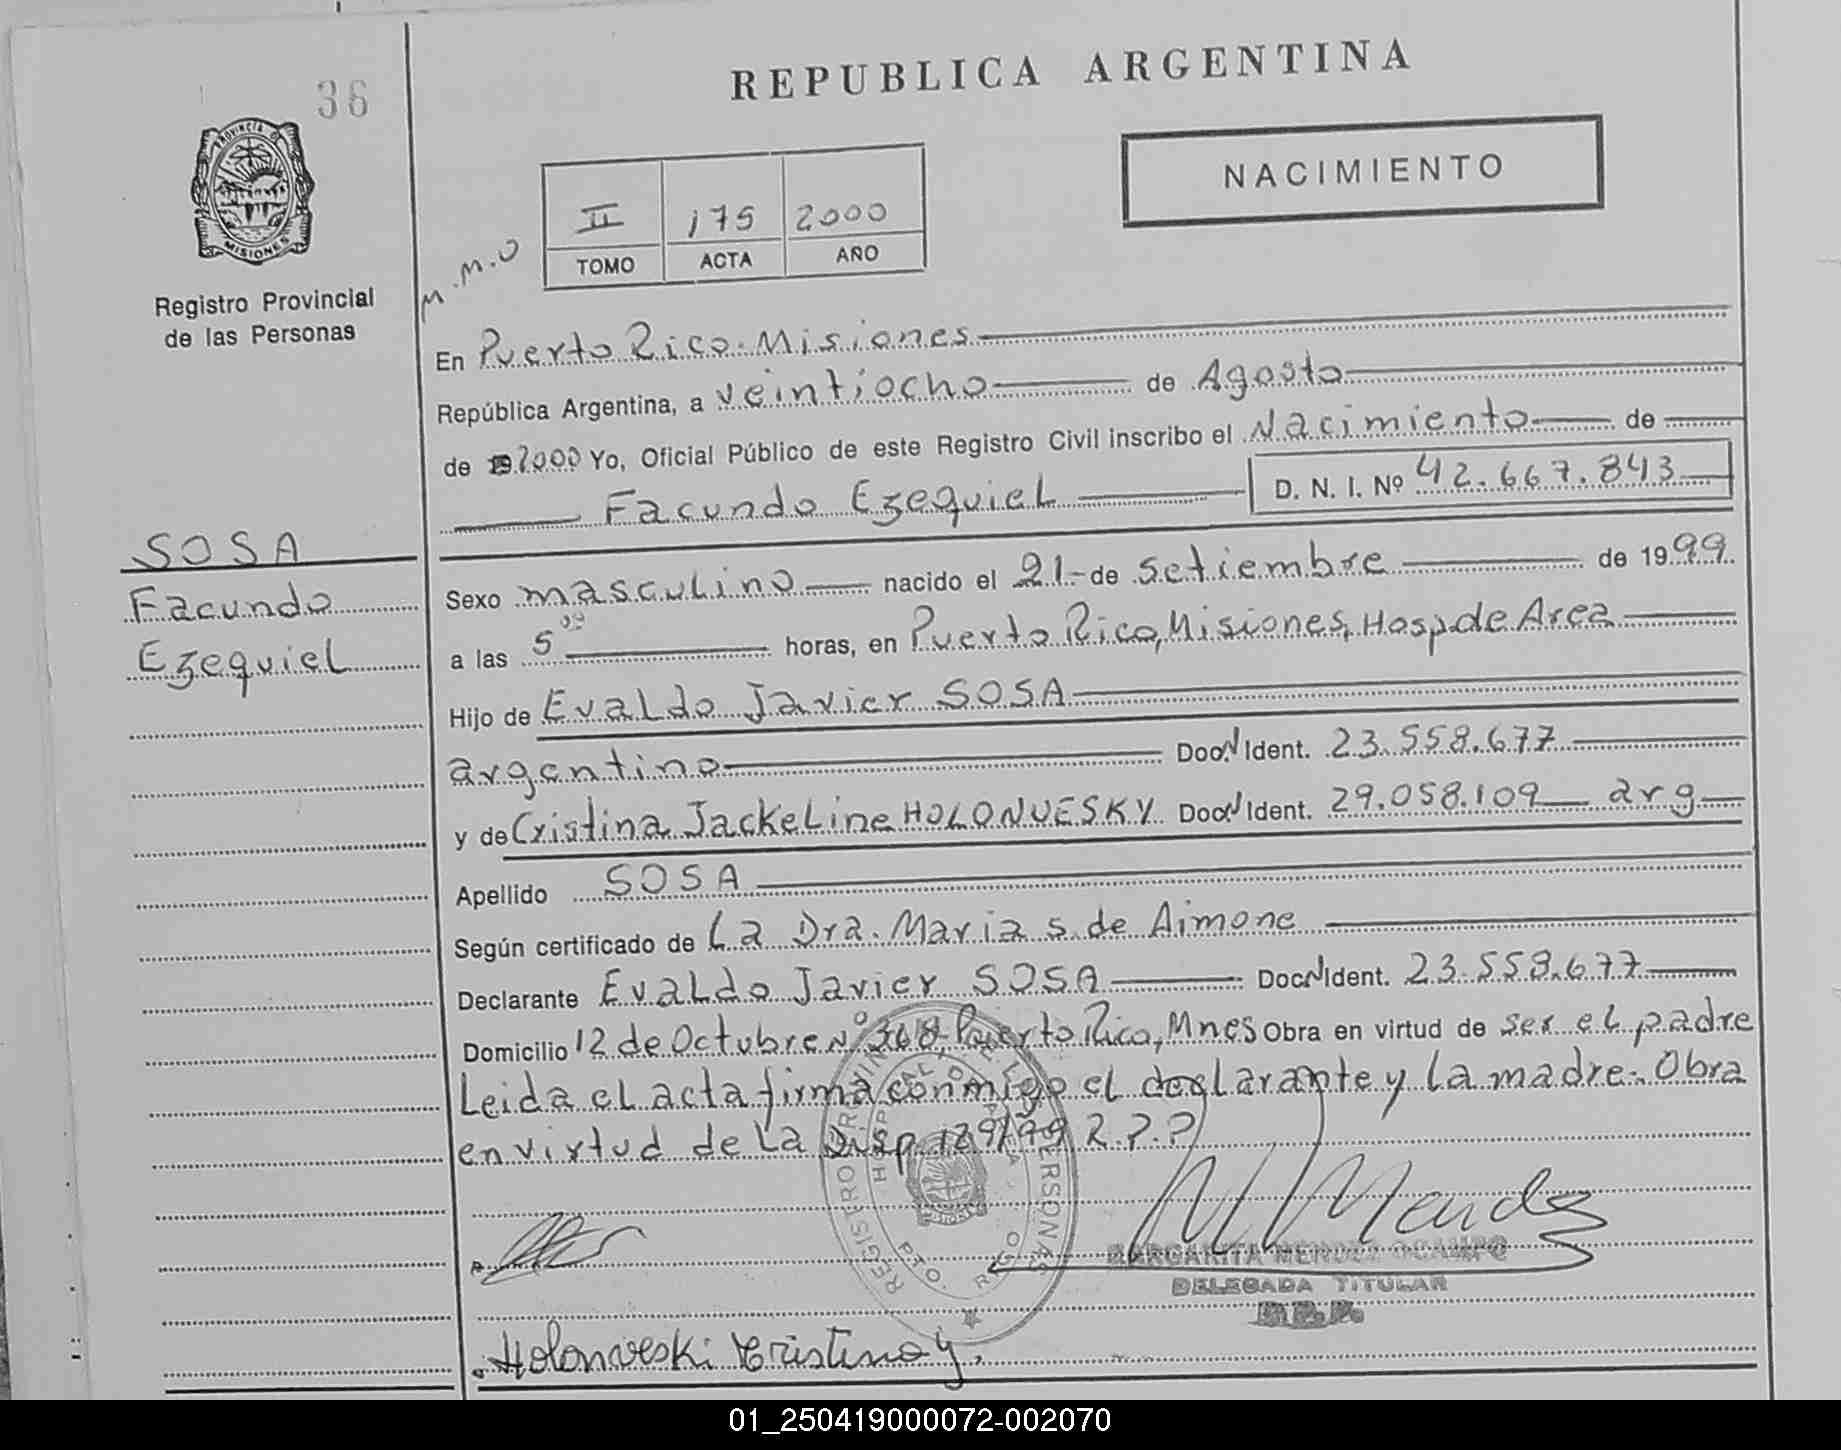 36
REPUBLICA ARGENTINA
NACIMIENTO
PROVINCIA DE
MISIONES
Registro Provincial
de las Personas
II 175 2000
TOMO ACTA AÑO
M.M.O
En Puerto Rico. Misiones
República Argentina, a veintiocho de Agosto
de 2000 Yo, Oficial Público de este Registro Civil inscribo el Nacimiento de
Facundo Ezequiel D. N. I. Nº 42.667.843
SOSA
Facundo
Ezequiel
Sexo masculino nacido el 21 de Setiembre de 1999.
a las 5 horas, en Puerto Rico, Misiones, Hosp de Area
Hijo de Evaldo Javier SOSA
argentino Doc. Ident. 23.558.677
y de Cristina Jackeline HOLONVESKY Doc. Ident. 29.058.109 arg
Apellido SOSA
Según certificado de La Dra. Maria S. de Aimone
Declarante Evaldo Javier SOSA Doc. Ident. 23.558.677
Domicilio 12 de Octubre Nº 368 Puerto Rico, Mnes Obra en virtud de ser el padre
Leida el acta firma conmigo el declarante y la madre. Obra
en virtud de la Disp 129/99 R.P.P
REGISTRO PROVINCIAL DE LAS PERSONAS
HOSPITAL DE AREA
PTO. RICO
M Mendez
MARGARITA MENDEZ OCAMPO
DELEGADA TITULAR
R.P.P.
Holonveski Cristina y.
01_250419000072-002070